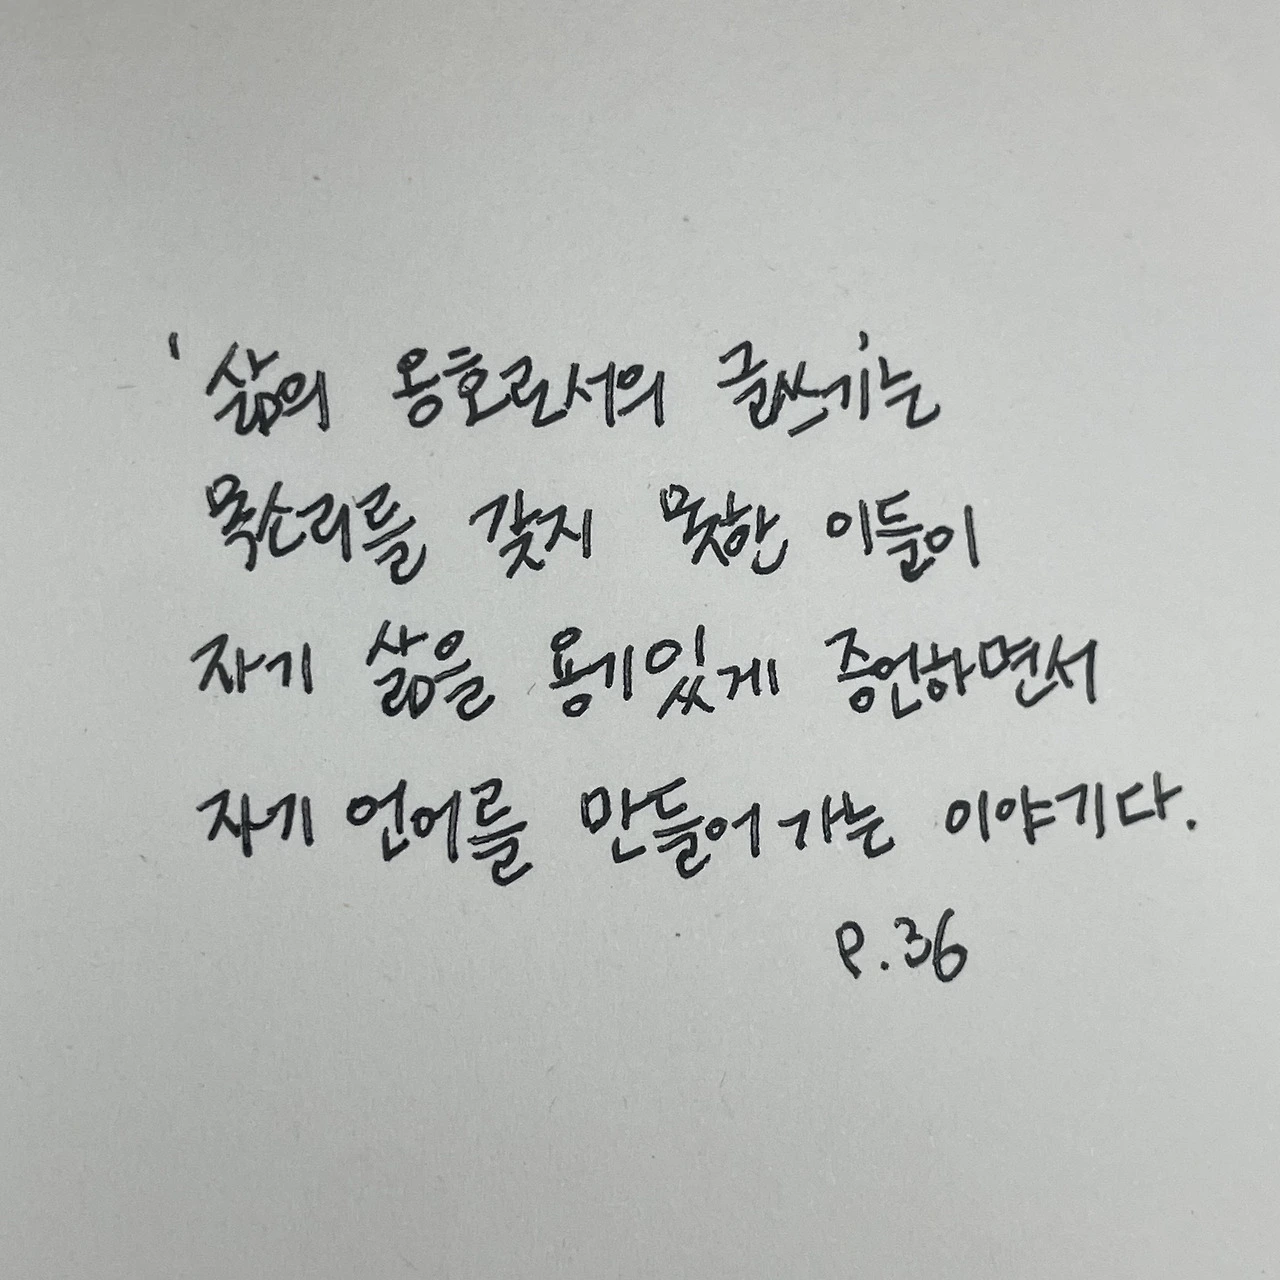 '삶의 옹호로서의 글쓰기'는
목소리를 갖지 못한 이들이
자기 삶을 용기있게 증언하면서
자기 언어를 만들어가는 이야기다.
P.36